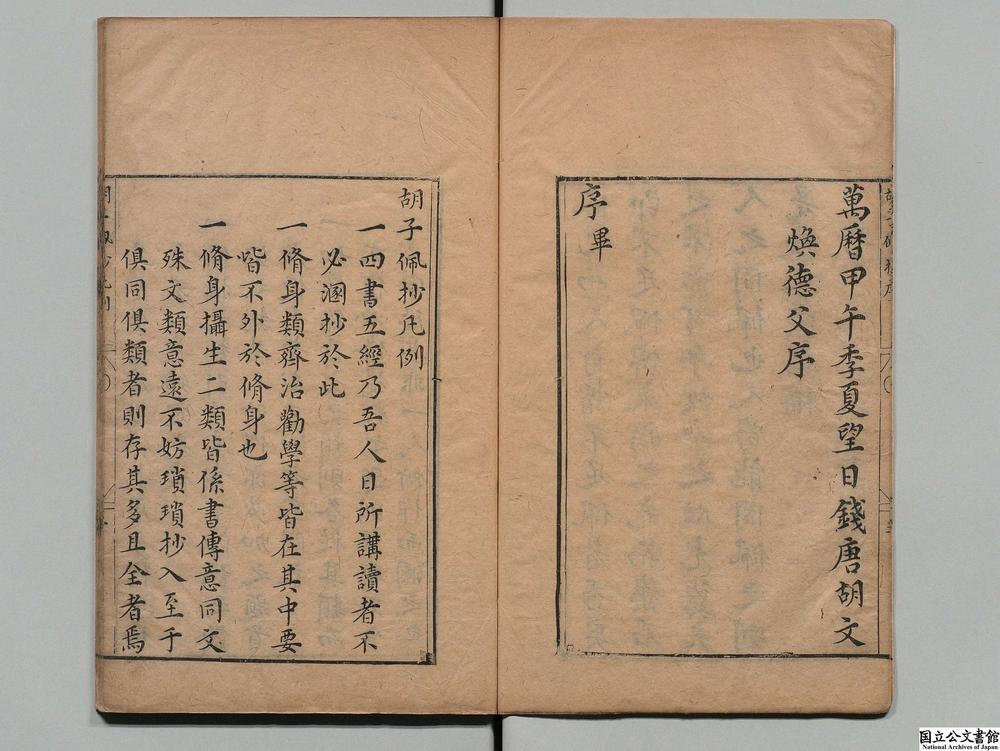 萬曆甲午季夏望日錢唐胡文
煥德父序
序畢
胡子佩抄凡例
一四書五經乃吾人日所講讀者不
必溷抄於此
一脩身類齊治勸學等皆在其中要
皆不外於脩身也
一脩身攝生二類皆係書傳意同文
殊文類意遠不妨瑣瑣抄入至于
俱同俱類者則存其多且全者焉
国立公文書館
National Archives of Japan